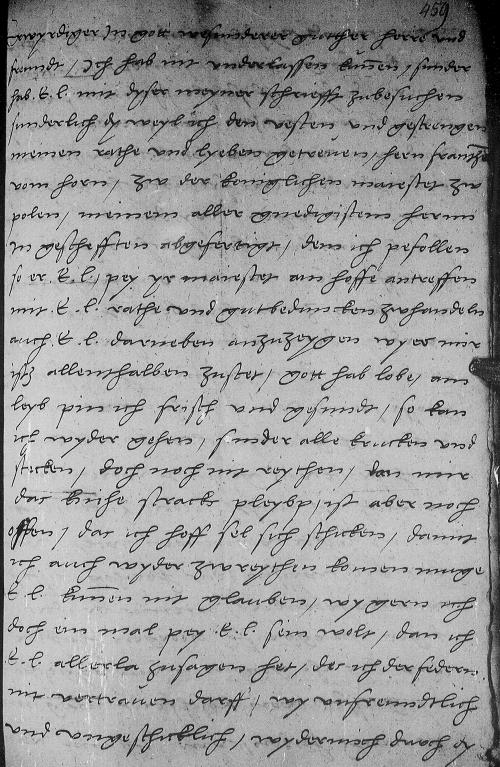 459
Erwyrdiger In gott wesunderer gutther herre und
freundt / Ich hab nit underlassen kunnen / sunder
hab. E. l. mit dyser meyner schriefft zubesuchen
sunderlich dy weyl ich den vesten und gestrengen
meinen rathe und lyeben getreuen / hern frantzen
vom horn / zw der koniglichen maiestet zw
polen / meinem aller gnedigistem hernn
In geschefften abgefertigt / dem ich pefollen
so er. E. l. / pey yr maiestet am hoffe antreffen
mit. E. l. rathe und gutbeduncken zwhandeln
auch. E. l. darneben anzuzeygen wy er mir
itz allenthalben zustet / gott hab lobe / am
leyb pin ich frisch und gesundt / so kan
ich wyder gehen / sunder alle krucken und
stecken / doch noch nit reythen / dan mir
das knihe stracks pleybp / ist aber noch
offen / das ich hoff sel sich schicken / damit
ich auch wyder zwreythen komen muge
E. l. kunnen nit glauben / wy gern ich
doch ein mal pey E. l. sein wolt / dan ich
E. l. allerla zusagen het / des ich der federn
nit vertrauen darff / wy unfreundtlich
und ungeschicklich / wyder mich durch dy